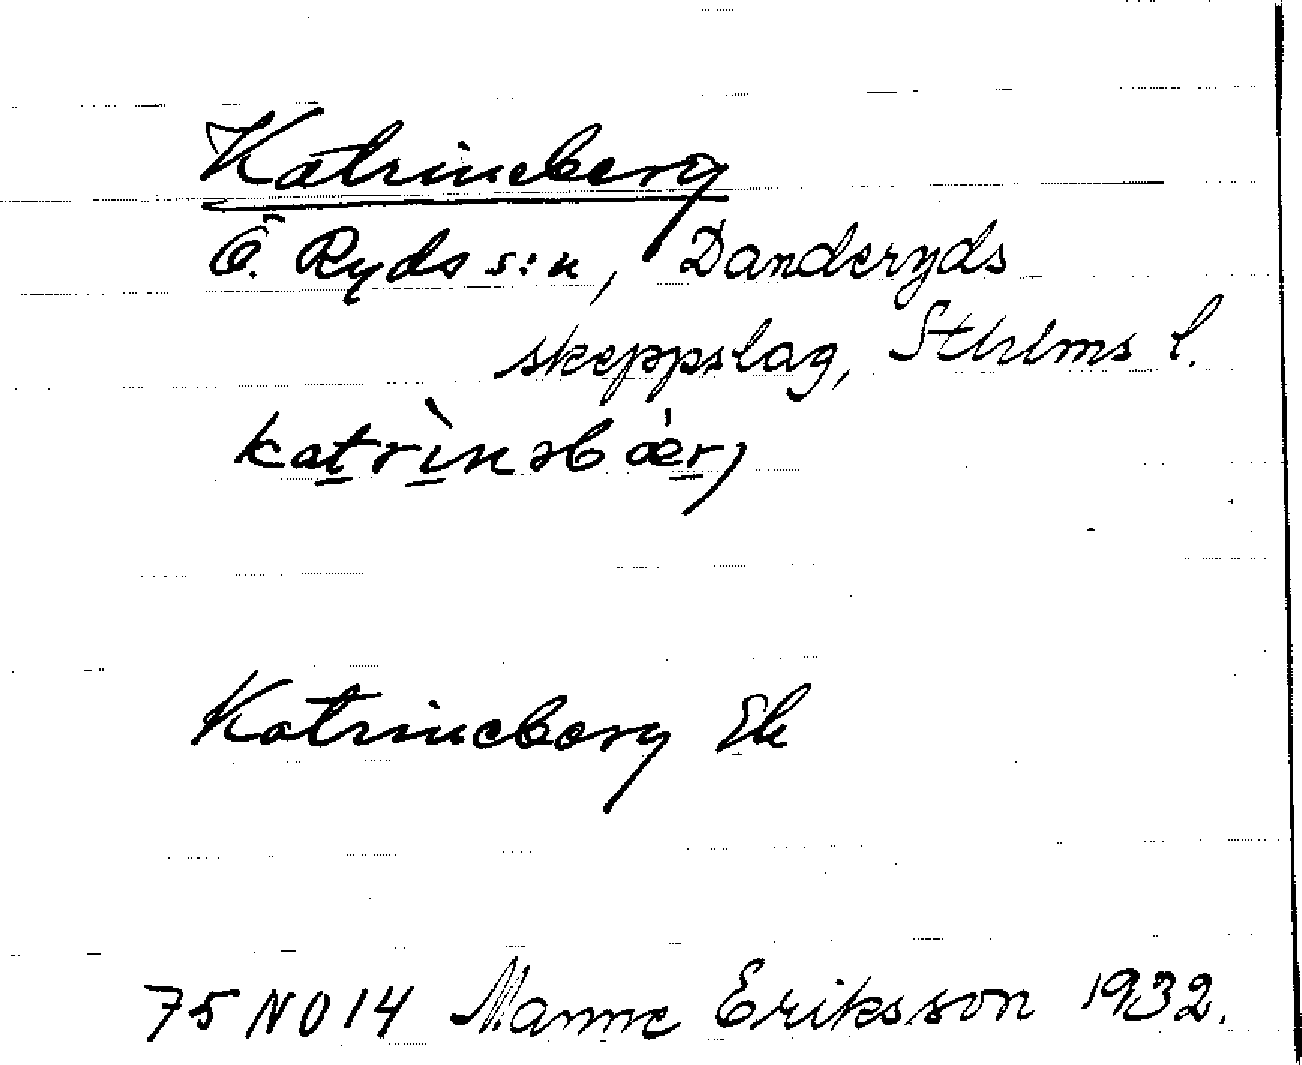 Katrineberg
Ö. Ryds s:n, Danderyds
skeppslag, Sthlms l.
katrìnəbǽrj
Katrineberg Ek
75 NO 14 Manne Eriksson 1932.